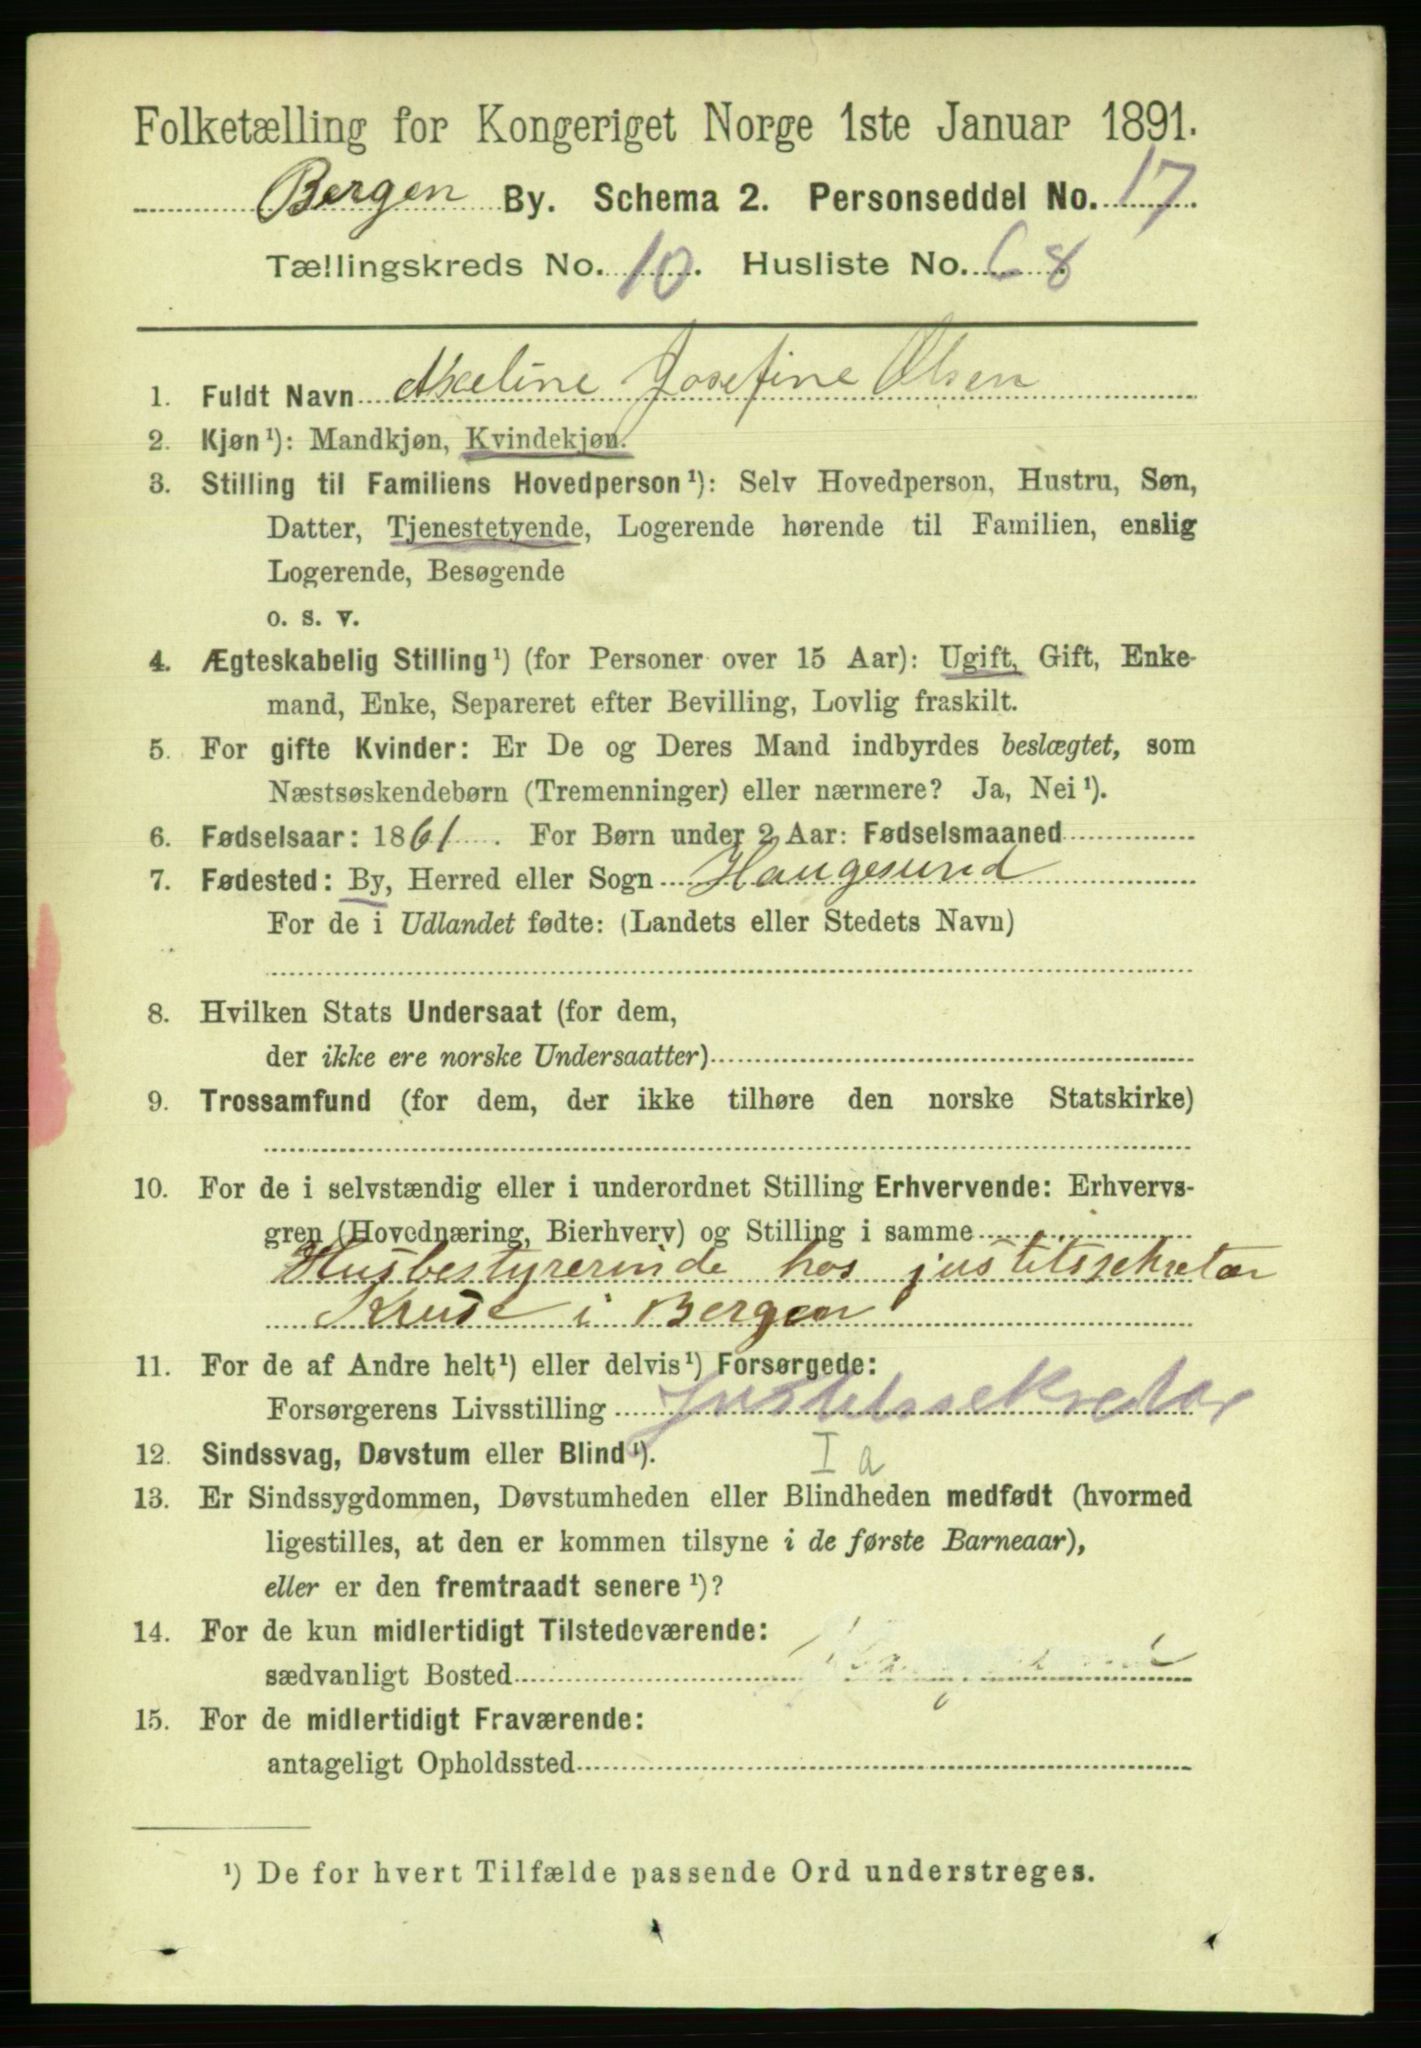 Folketælling for Kongeriget Norge 1ste Januar 1891.
Bergen By. Schema 2. Personseddel No. 17
Tællingskreds No. 10. Husliste No. 68
1. Fuldt Navn Axeline Josefine Olsen
2. Kjøn¹): Mandkjøn, Kvindekjøn.
3. Stilling til Familiens Hovedperson¹): Selv Hovedperson, Hustru, Søn,
Datter, Tjenestetyende, Logerende hørende til Familien, enslig
Logerende, Besøgende
o. s. v.
4. Ægteskabelig Stilling¹) (for Personer over 15 Aar): Ugift, Gift, Enke-
mand, Enke, Separeret efter Bevilling, Lovlig fraskilt.
5. For gifte Kvinder: Er De og Deres Mand indbyrdes beslægtet, som
Næstsøskendebørn (Tremenninger) eller nærmere? Ja, Nei¹).
6. Fødselsaar: 1861. For Børn under 2 Aar: Fødselsmaaned
7. Fødested: By, Herred eller Sogn Haugesund
For de i Udlandet fødte: (Landets eller Stedets Navn)
8. Hvilken Stats Undersaat (for dem,
der ikke ere norske Undersaatter)
9. Trossamfund (for dem, der ikke tilhøre den norske Statskirke)
10. For de i selvstændig eller i underordnet Stilling Erhvervende: Erhvervs-
gren (Hovednæring, Bierhverv) og Stilling i samme
Husbestyrerinde hos justitssekretær
i Bergen
11. For de af Andre helt¹) eller delvis¹) Forsørgede:
Forsørgerens Livsstilling Justitssekretær
12. Sindssvag, Døvstum eller Blind¹). I a
13. Er Sindssygdommen, Døvstumheden eller Blindheden medfødt (hvormed
ligestilles, at den er kommen tilsyne i de første Barneaar),
eller er den fremtraadt senere¹)?
14. For de kun midlertidigt Tilstedeværende:
sædvanligt Bosted
15. For de midlertidigt Fraværende:
antageligt Opholdssted
¹) De for hvert Tilfælde passende Ord understreges.